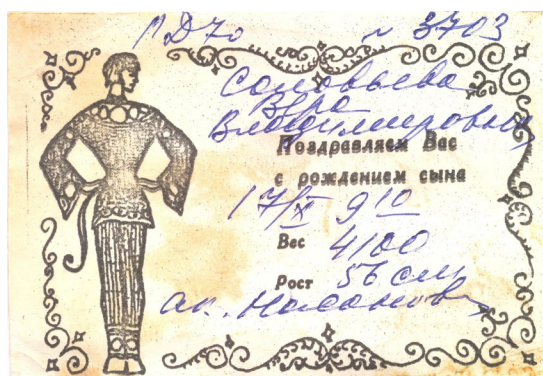 № 3703
Соловьева
Вера
Владимировна
Поздравляем Вас
с рождением сына
17/X 9 10
Вес 4100
Рост 56 см
ак.